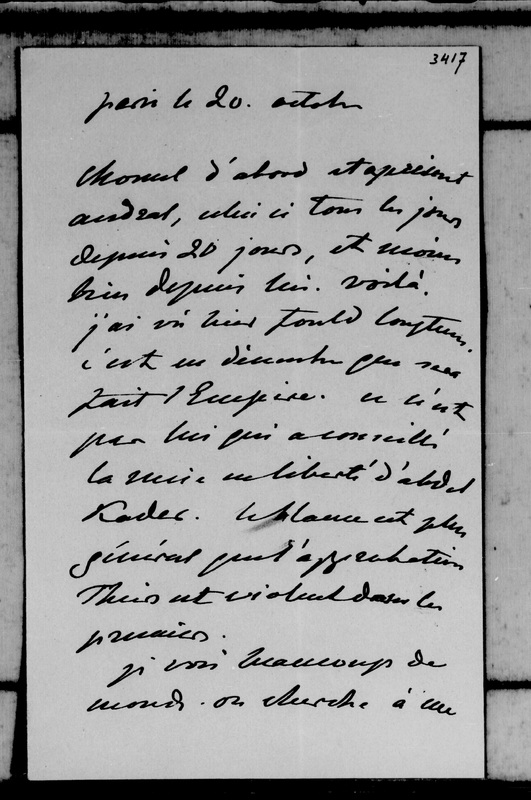 3417
paris le 20. octobre
Chomel d'abord et apresent
andral, celui ci tous les jours
depuis 20 jours, et moins
bien depuis lui. voilà.
j'ai vu hier Fould longtems.
c'est en décembre que sera
fait l'Empire. ce n'est
pas lui qui a conseillé
la mise en liberté d'abdel
Kader. le blame est plus
général que l'approbation
Thiers est violent dans les
premiers.
je vois beaucoup de
monde. on cherche à me